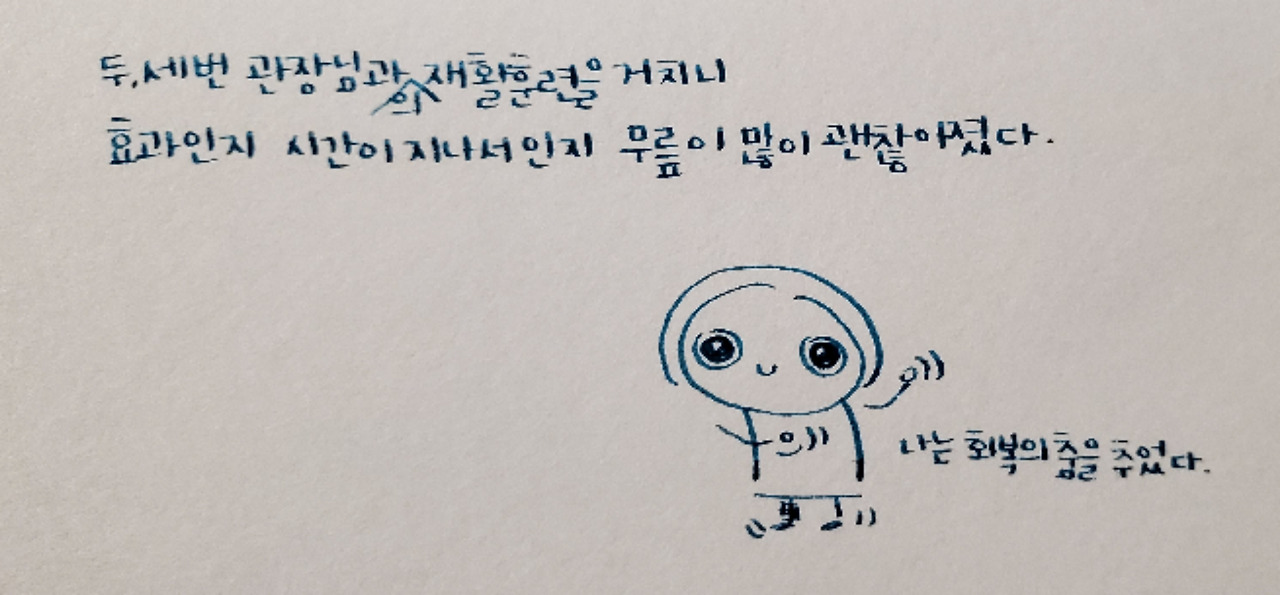 두,세번 관장님과의 재활훈련을 거치니
효과인지 시간이 지나서인지 무릎이 많이 괜찮아졌다.
나는 회복의 춤을 추었다.